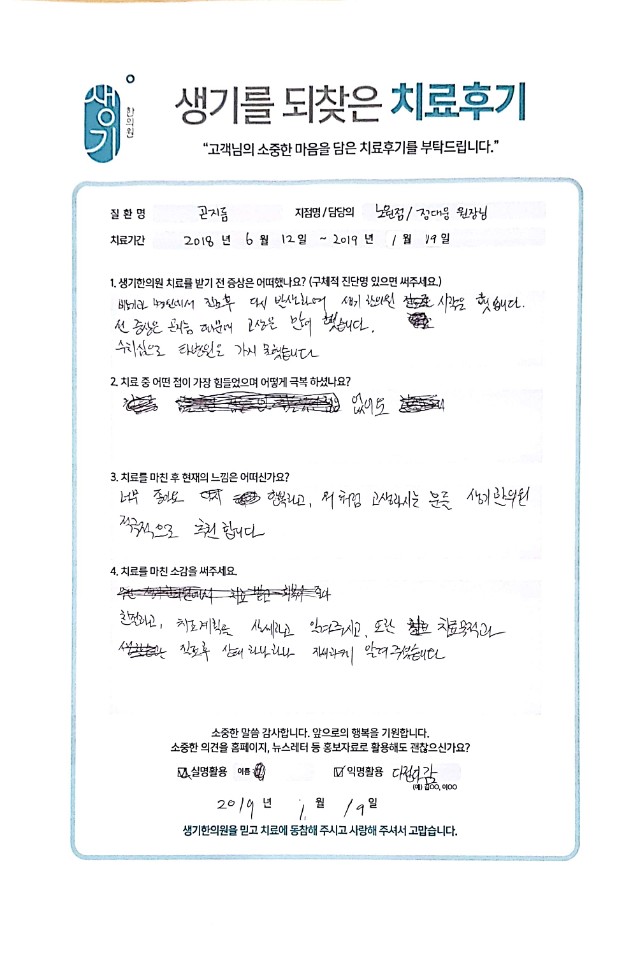 생기
한의원
생기를 되찾은 치료후기
"고객님의 소중한 마음을 담은 치료후기를 부탁드립니다."
질 환 명 곤지름 지점명 / 담당의 노원점 / 정대웅 원장님
치료기간 2018 년 6 월 12 일 ~ 2019 년 1 월 19 일
1. 생기한의원 치료를 받기 전 증상은 어떠했나요? (구체적 진단명 있으면 써주세요.)
비뇨기과 병원에서 치료후 다시 생기한의원 시작을 했습니다.
전 증상은 곤지름 때문에 고생을 많이 했습니다.
수치심으로 타병원을 가지 못했습니다
2. 치료 중 어떤 점이 가장 힘들었으며 어떻게 극복 하셨나요?
없이도
3. 치료를 마친 후 현재의 느낌은 어떠신가요?
너무 좋아요 행복하고, 저처럼 고생하시는 분들 생기한의원
적극적으로 추천 합니다
4. 치료를 마친 소감을 써주세요.
친절하고, 치료계획을 상세하고 알려주시고, 또한 치료목적과
치료후 상태 하나하나 알려 주셨습니다
소중한 말씀 감사합니다. 앞으로의 행복을 기원합니다.
소중한 의견을 홈페이지, 뉴스레터 등 홍보자료로 활용해도 괜찮으신가요?
실명활용 이름 익명활용
(예) 김OO, 이OO
2019 년 1 월 19 일
생기한의원을 믿고 치료에 동참해 주시고 사랑해 주셔서 고맙습니다.